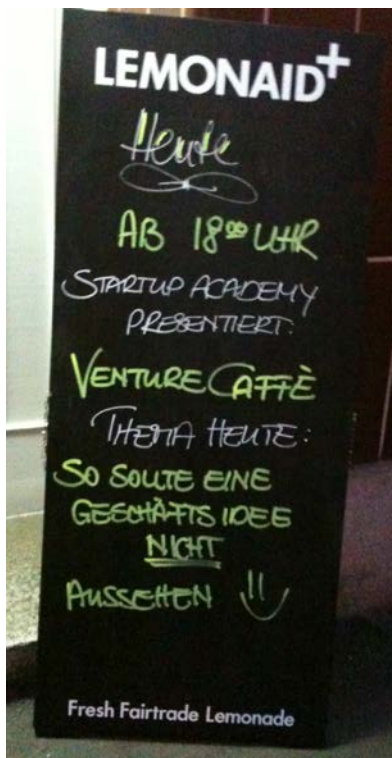 LEMONAID+
Heute
AB 18⁰⁰ UHR
STARTUP ACADEMY
PRESENTIERT:
VENTURE CAFFÈ
THEMA HEUTE:
SO SOLLTE EINE
GESCHÄFTS IDEE
NICHT
AUSSEHEN
Fresh Fairtrade Lemonade